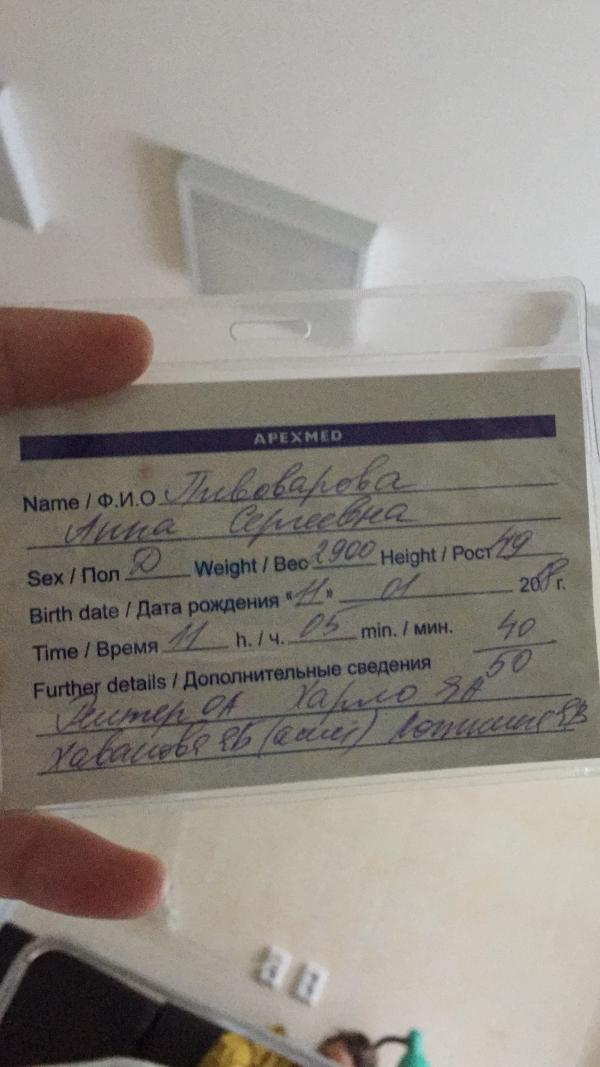 APEXMED
Name / Ф.И.О Пивоварова
Анна Сергеевна
Sex / Пол Д Weight / Вес 2900 Height / Рост 49
Birth date / Дата рождения "11" 01 2018 г.
Time / Время 11 h. / ч. 05 min. / мин. 40
Further details / Дополнительные сведения 50
ОА Харло ЯА
ЯБ